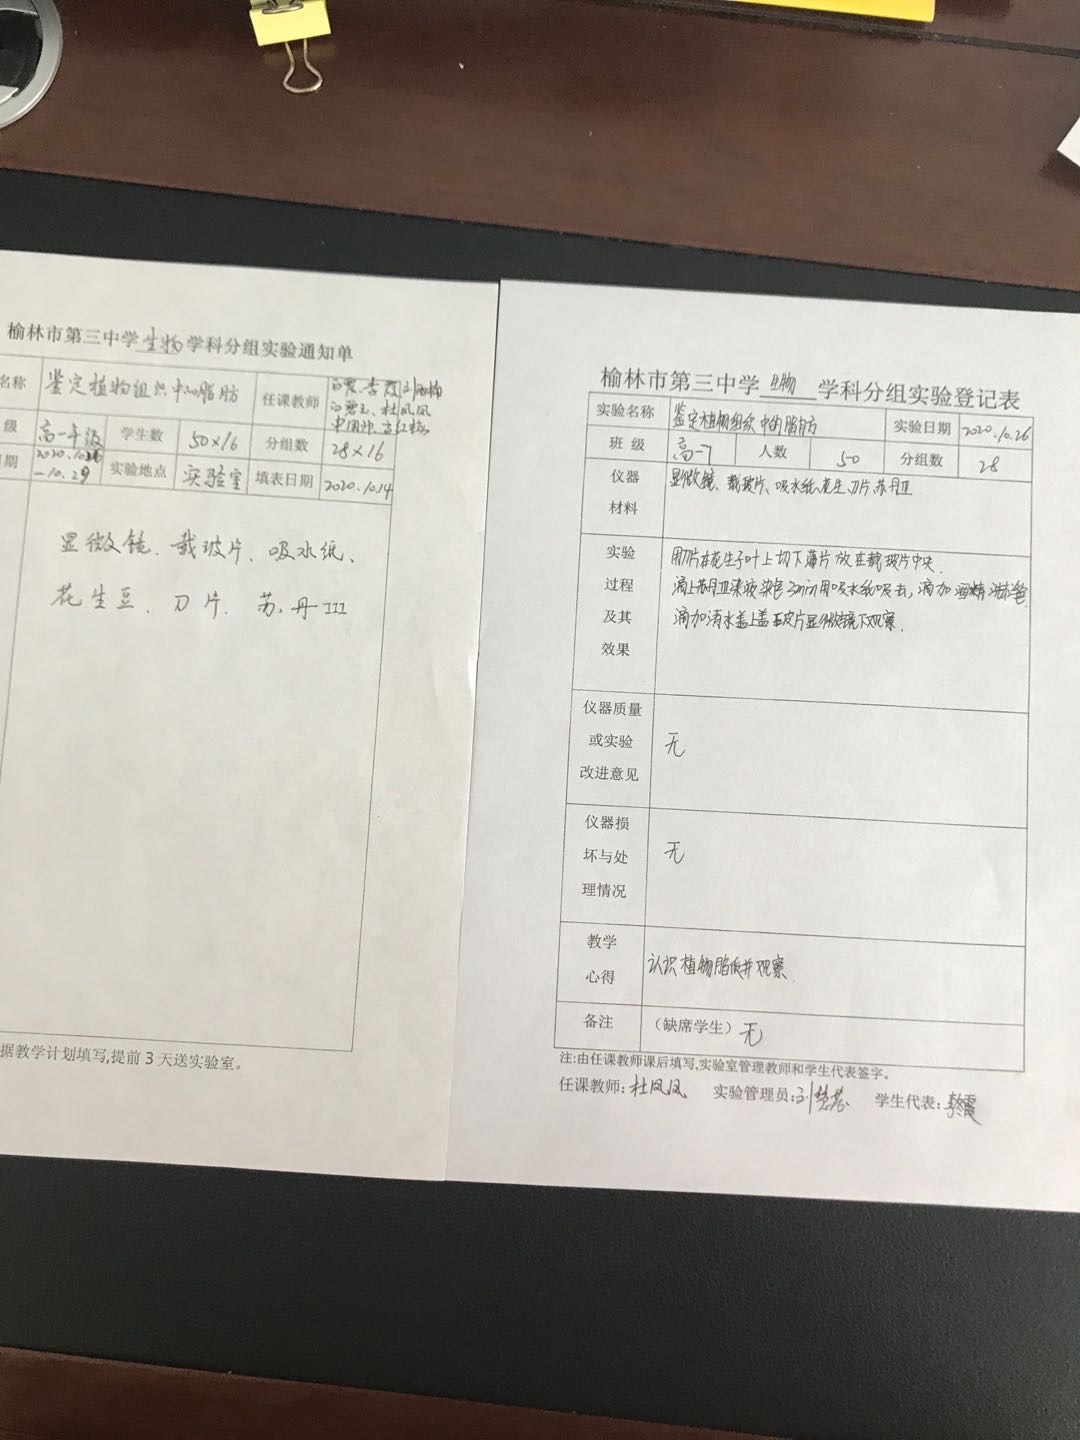 榆林市第三中学生物学科分组实验通知单
名称 鉴定植物组织中的脂肪 任课教师
白霞、李霞
杜凤凤
级 高一年级 学生数 50×16 分组数 28×16
日期 2020.10.26-10.29 实验地点 实验室 填表日期 2020.10.14
显微镜、载玻片、吸水纸、
花生豆、刀片、苏丹III
据教学计划填写,提前3天送实验室。
榆林市第三中学生物学科分组实验登记表
实验名称 鉴定植物组织中的脂肪 实验日期 2020.10.26
班级 高一7 人数 50 分组数 28
仪器材料 显微镜、载玻片、吸水纸、花生、刀片、苏丹III
实验过程及其效果
用刀片在花生子叶上切下薄片放在载玻片中央.
滴上苏丹III染液染色3min用吸水纸吸去,滴加酒精洗浮色
滴加清水盖上盖玻片显微镜下观察.
仪器质量或实验改进意见 无
仪器损坏与处理情况 无
教学心得 认识植物脂质并观察.
备注 (缺席学生) 无
注:由任课教师课后填写,实验室管理教师和学生代表签字。
任课教师:杜凤凤 实验管理员: 学生代表: